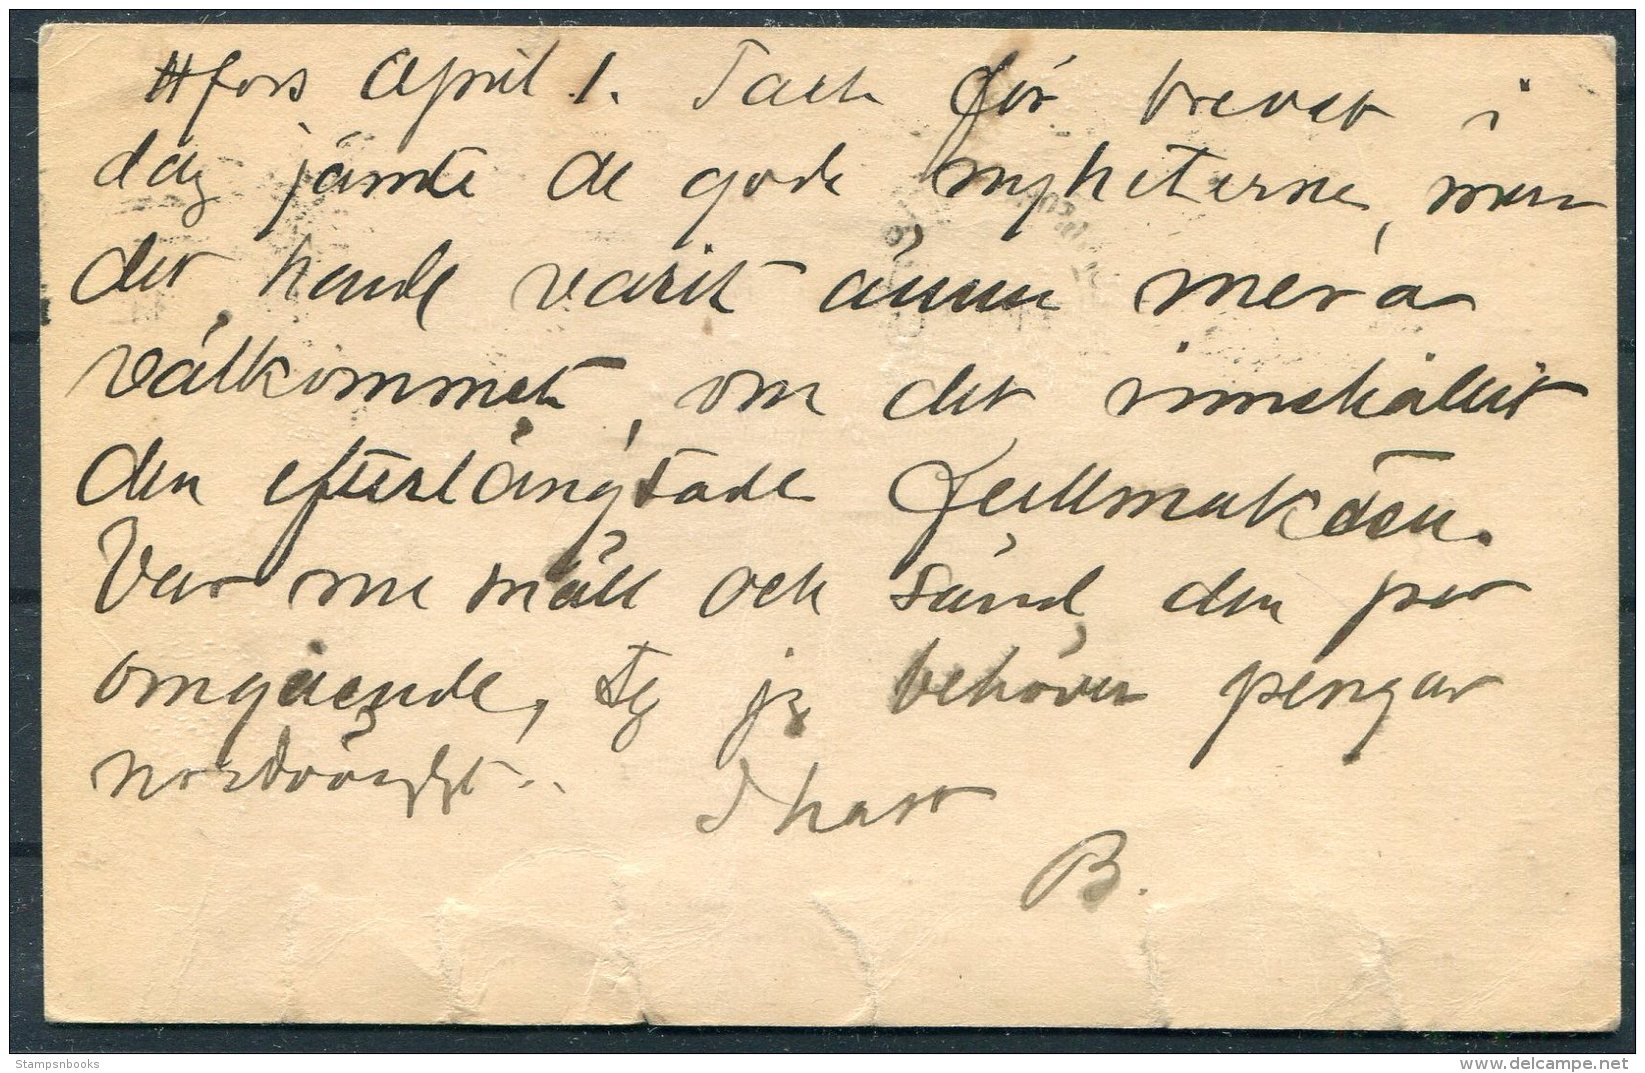 Hfors April 1. Tack för brevet i
dag jämte de goda nyheterna, men
det hade varit ännu mera
välkommet, om det innehållit
den efterlängtade fullmakten.
Var nu snäll och sänd den per
omgående, ty jag behöver pengar
nödvändigt..
I hast
B.
Stampsnbooks
delcampe.net